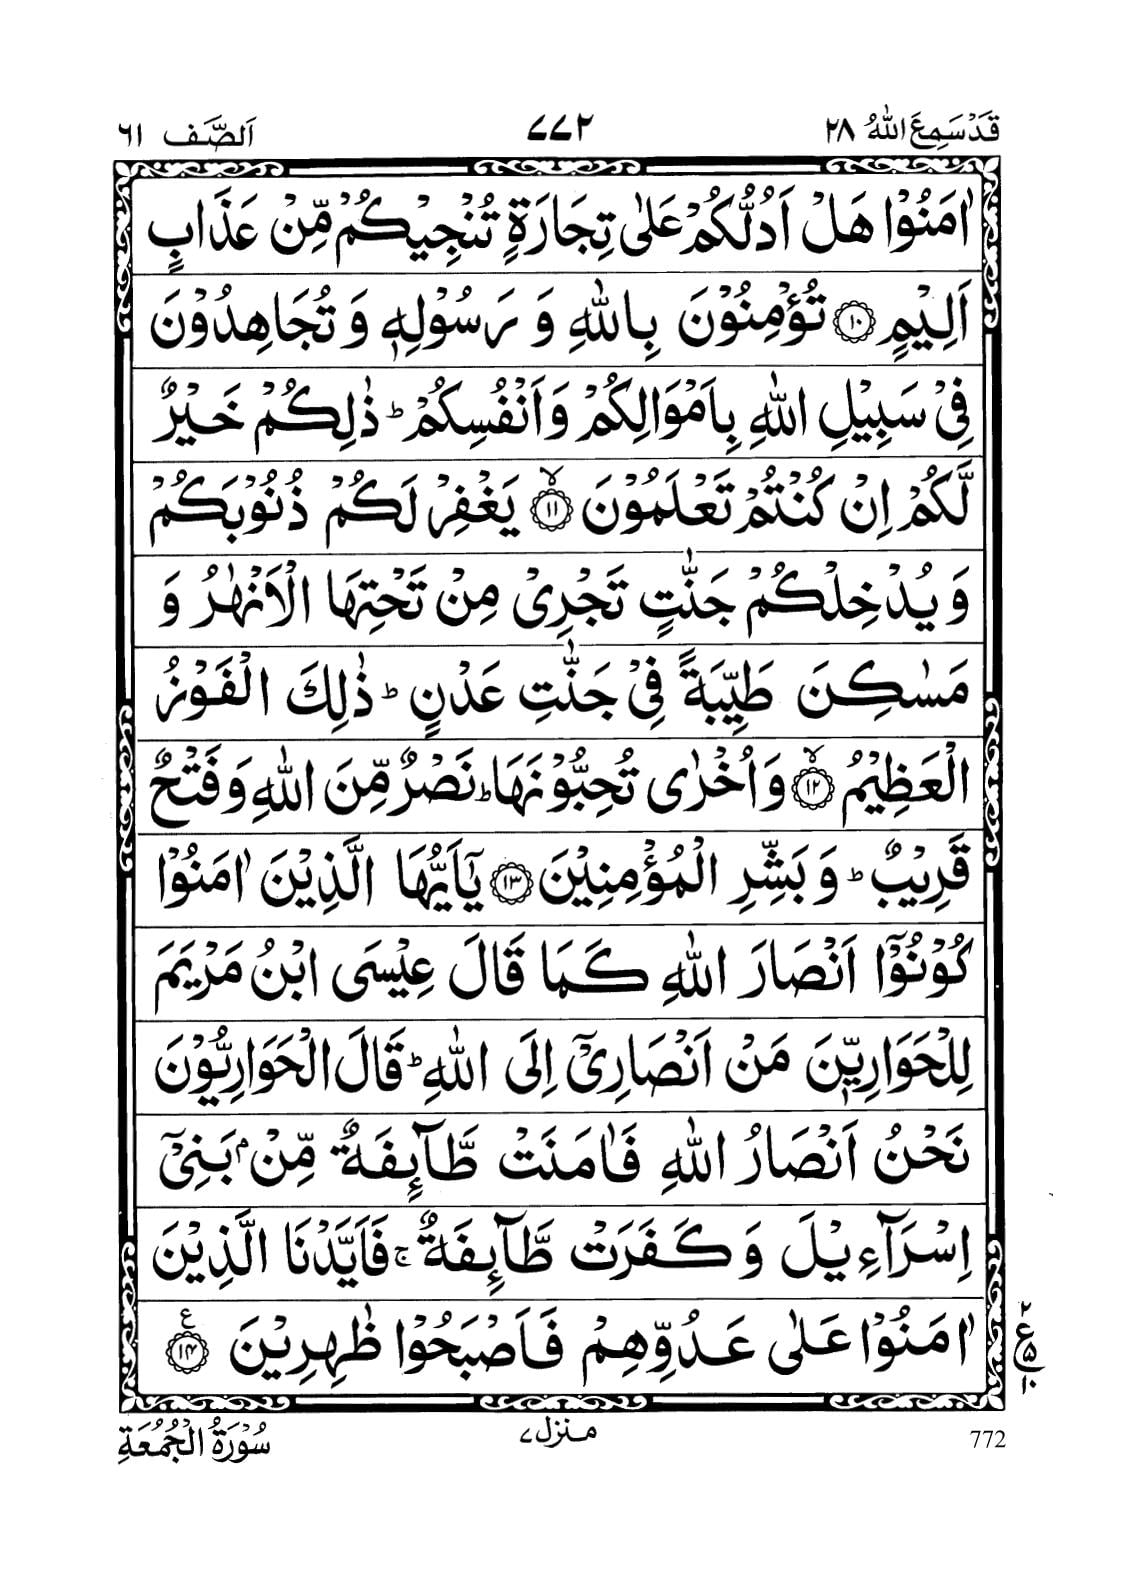 قَدْ سَمِعَ اللّٰهُ ٢٨
٧٧٢
اَلصَّف ٦١
اٰمَنُوْا هَلْ اَدُلُّكُمْ عَلٰى تِجَارَةٍ تُنْجِيْكُمْ مِّنْ عَذَابٍ
اَلِيْمٍ ۝١٠ تُؤْمِنُوْنَ بِاللّٰهِ وَ رَسُوْلِهٖ وَ تُجَاهِدُوْنَ
فِیْ سَبِيْلِ اللّٰهِ بِاَمْوَالِكُمْ وَاَنْفُسِكُمْ ؕ ذٰلِكُمْ خَيْرٌ
لَّكُمْ اِنْ كُنْتُمْ تَعْلَمُوْنَ ۙ۝١١ يَغْفِرْ لَكُمْ ذُنُوْبَكُمْ
وَ يُدْخِلْكُمْ جَنّٰتٍ تَجْرِیْ مِنْ تَحْتِهَا الْاَنْهٰرُ وَ
مَسٰكِنَ طَيِّبَةً فِیْ جَنّٰتِ عَدْنٍ ؕ ذٰلِكَ الْفَوْزُ
الْعَظِيْمُ ۙ۝١٢ وَاُخْرٰى تُحِبُّوْنَهَا ؕ نَصْرٌ مِّنَ اللّٰهِ وَفَتْحٌ
قَرِيْبٌ ؕ وَ بَشِّرِ الْمُؤْمِنِيْنَ ۝١٣ يٰۤاَيُّهَا الَّذِيْنَ اٰمَنُوْا
كُوْنُوْۤا اَنْصَارَ اللّٰهِ كَمَا قَالَ عِيْسَى ابْنُ مَرْيَمَ
لِلْحَوَارِيّٖنَ مَنْ اَنْصَارِیْۤ اِلَى اللّٰهِ ؕ قَالَ الْحَوَارِيُّوْنَ
نَحْنُ اَنْصَارُ اللّٰهِ فَاٰمَنَتْ طَّآىِٕفَةٌ مِّنْۢ بَنِیْۤ
اِسْرَآءِيْلَ وَ كَفَرَتْ طَّآىِٕفَةٌ ۚ فَاَيَّدْنَا الَّذِيْنَ
اٰمَنُوْا عَلٰى عَدُوِّهِمْ فَاَصْبَحُوْا ظٰهِرِيْنَ ۝١٤ ع
٢
ع ٥
١٠
سُوْرَةُ الْجُمُعَةِ
منزل ٧
772